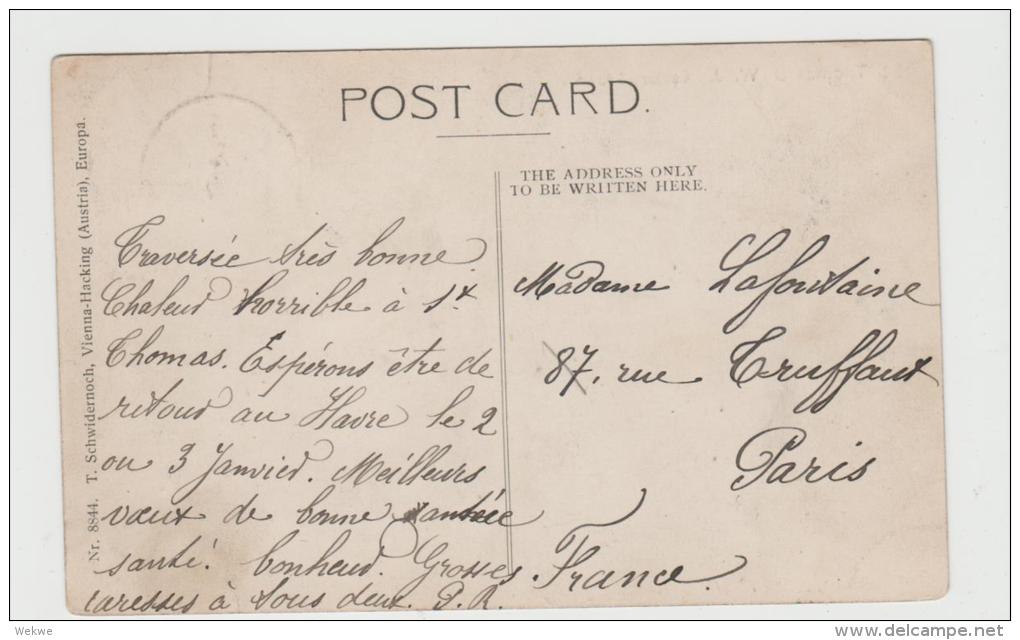 POST CARD.
THE ADDRESS ONLY
TO BE WRITTEN HERE.
Nr. 8844. T. Schwidernoch, Vienna-Hacking (Austria), Europa.
Traversée très bonne.
Chaleur horrible à St
Thomas. Espérons être de
retour au Havre le 2
ou 3 Janvier. Meilleurs
vœux de bonne
santé! bonheur. Grosses
caresses à tous deux. P.R.
Madame Lafontaine
87, rue Truffaut
Paris
France.
Wekwe
delcampe.net